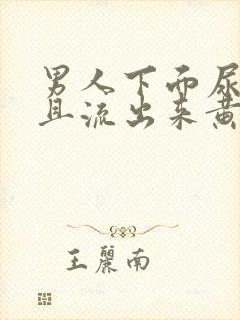 男人下面尿
且流出来黄
王丽南